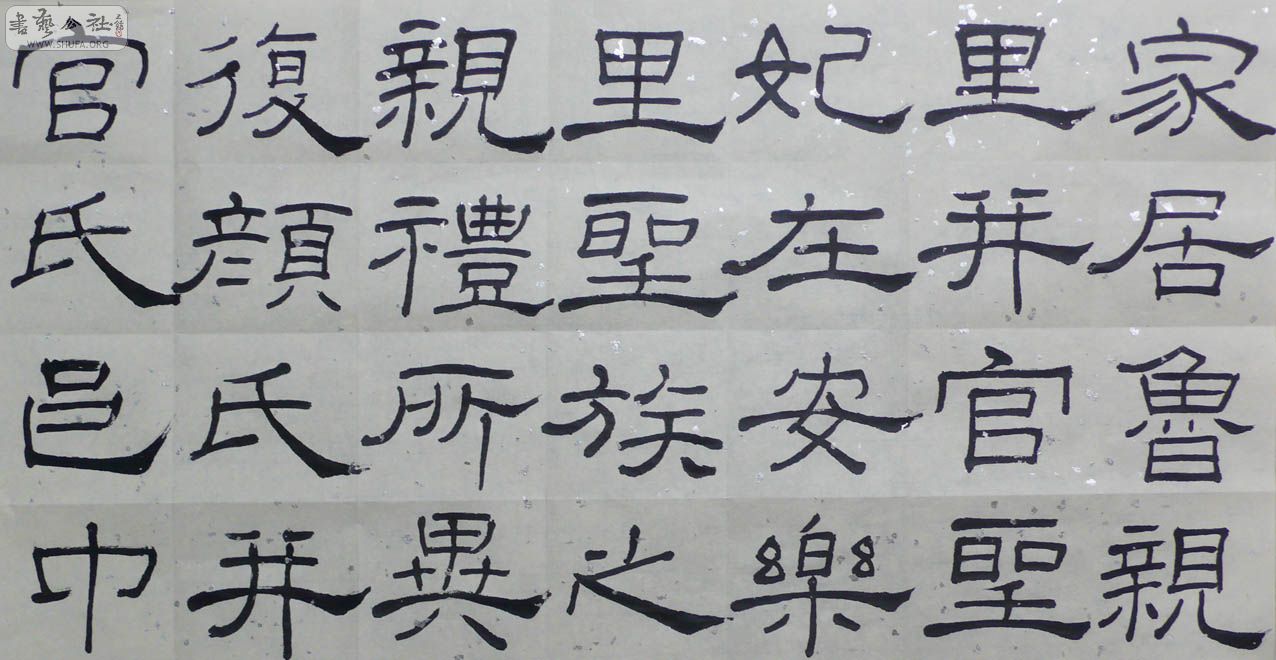 家居魯親
里并官聖
妃在安樂
里聖族之
親禮所異
復顏氏并
官氏邑巾
書藝公社
WWW.SHUFA.ORG